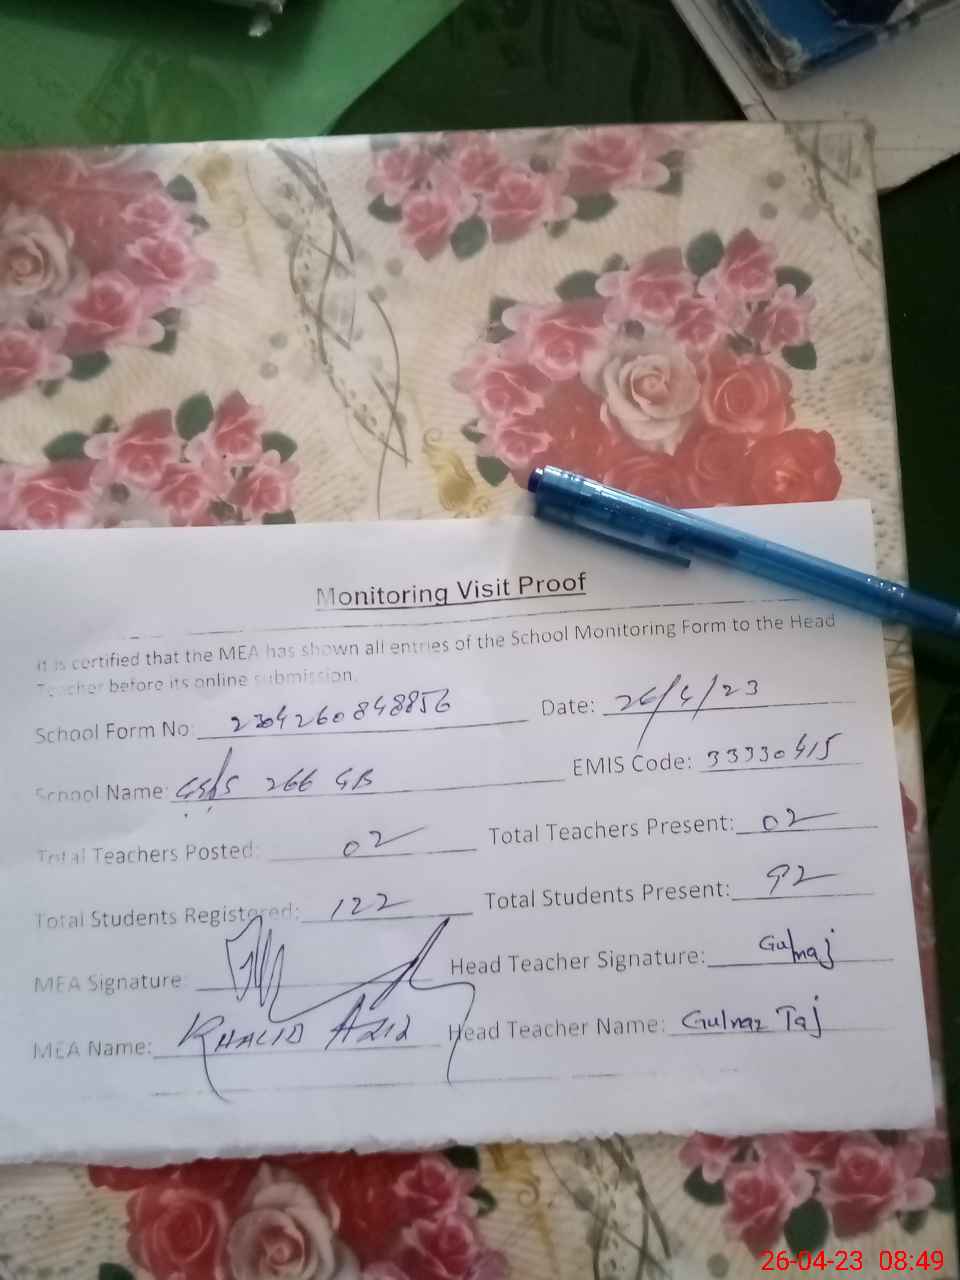 Monitoring Visit Proof
It is certified that the MEA has shown all entries of the School Monitoring Form to the Head
Teacher before its online submission.
School Form No: 2304260848856 Date: 26/4/23
School Name: 266 GB EMIS Code: 33330415
Total Teachers Posted: 02 Total Teachers Present: 02
Total Students Registered: 122 Total Students Present: 92
MEA Signature: Head Teacher Signature: Gulnaj
MEA Name: KHALID AZIZ Head Teacher Name: Gulnaz Taj
26-04-23 08:49